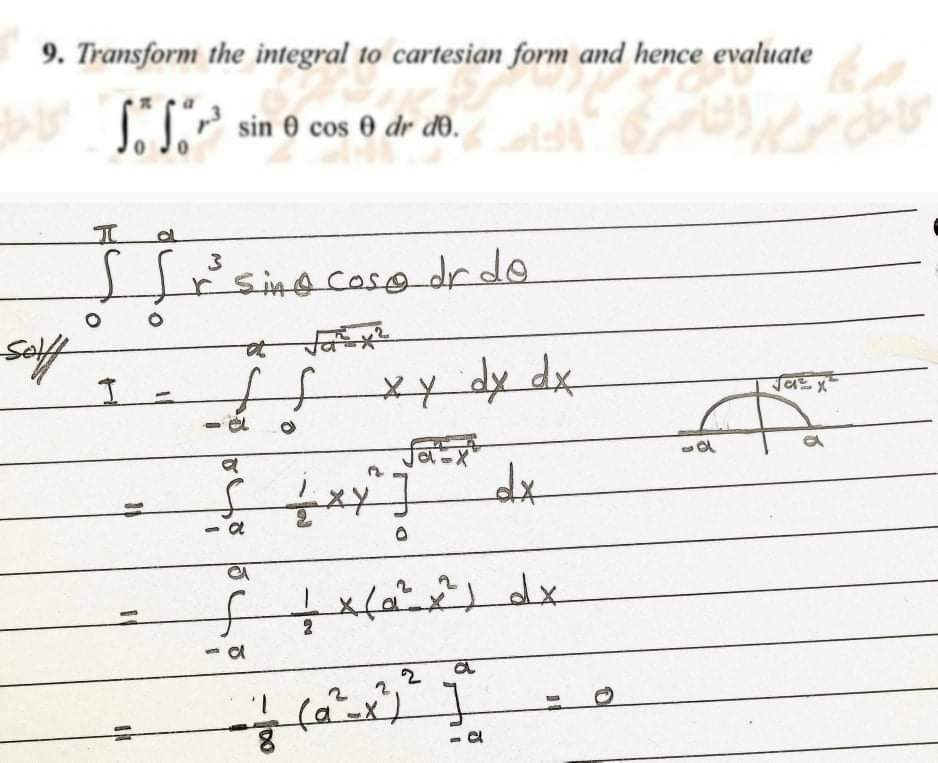 9. Transform the integral to cartesian form and hence evaluate
∫₀^π ∫₀^a r³ sin θ cos θ dr dθ.
∫₀^π ∫₀^a r³ sinθ cosθ dr dθ
Sol//
I = ∫₋ₐ^a ∫₀^√(a²-x²) xy dy dx
√a²-x²
-a a
= ∫₋ₐ^a ½ xy² ]₀^√(a²-x²) dx
= ∫₋ₐ^a ½ x(a²-x²) dx
= -⅛ (a²-x²)² ]₋ₐ^a = 0